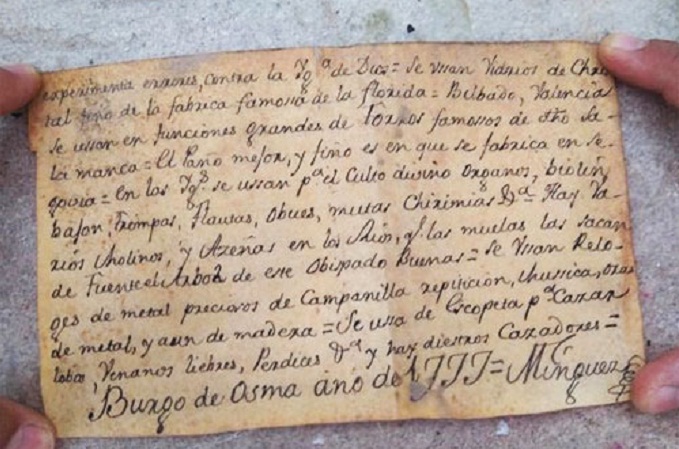 experimenta errores, contra la Yg.ª de Dios = Se ussan Vidrios de Chris
tal fino de la fabrica famosa de la florida = Bilbado, Valencia
se ussan en funciones grandes de torros famossos de dho Sa-
lamanca = El Pano mejor, y fino es en que se fabrica en Se-
govia = En las Ygª.s se ussan pª el Culto divino Organos, biolin,
bajon, Trompas, Flautas, obues, muttas Chirimias &ª = Hay Va-
rios Molinos, y Azeñas en los Rios, y las muelas las sacan
de Fuentel Arbol de este Obispado Buenas = Se Ussan Relo-
ges de metal preciosos de Campanilla repiticion,
de metal, y aun de madera = Se ussa de Escopeta pª Cazar
lobos, Venanos liebres, Perdices &ª y hay diestros Cazadores =
Burgo de Osma año de 1777 = Minguez